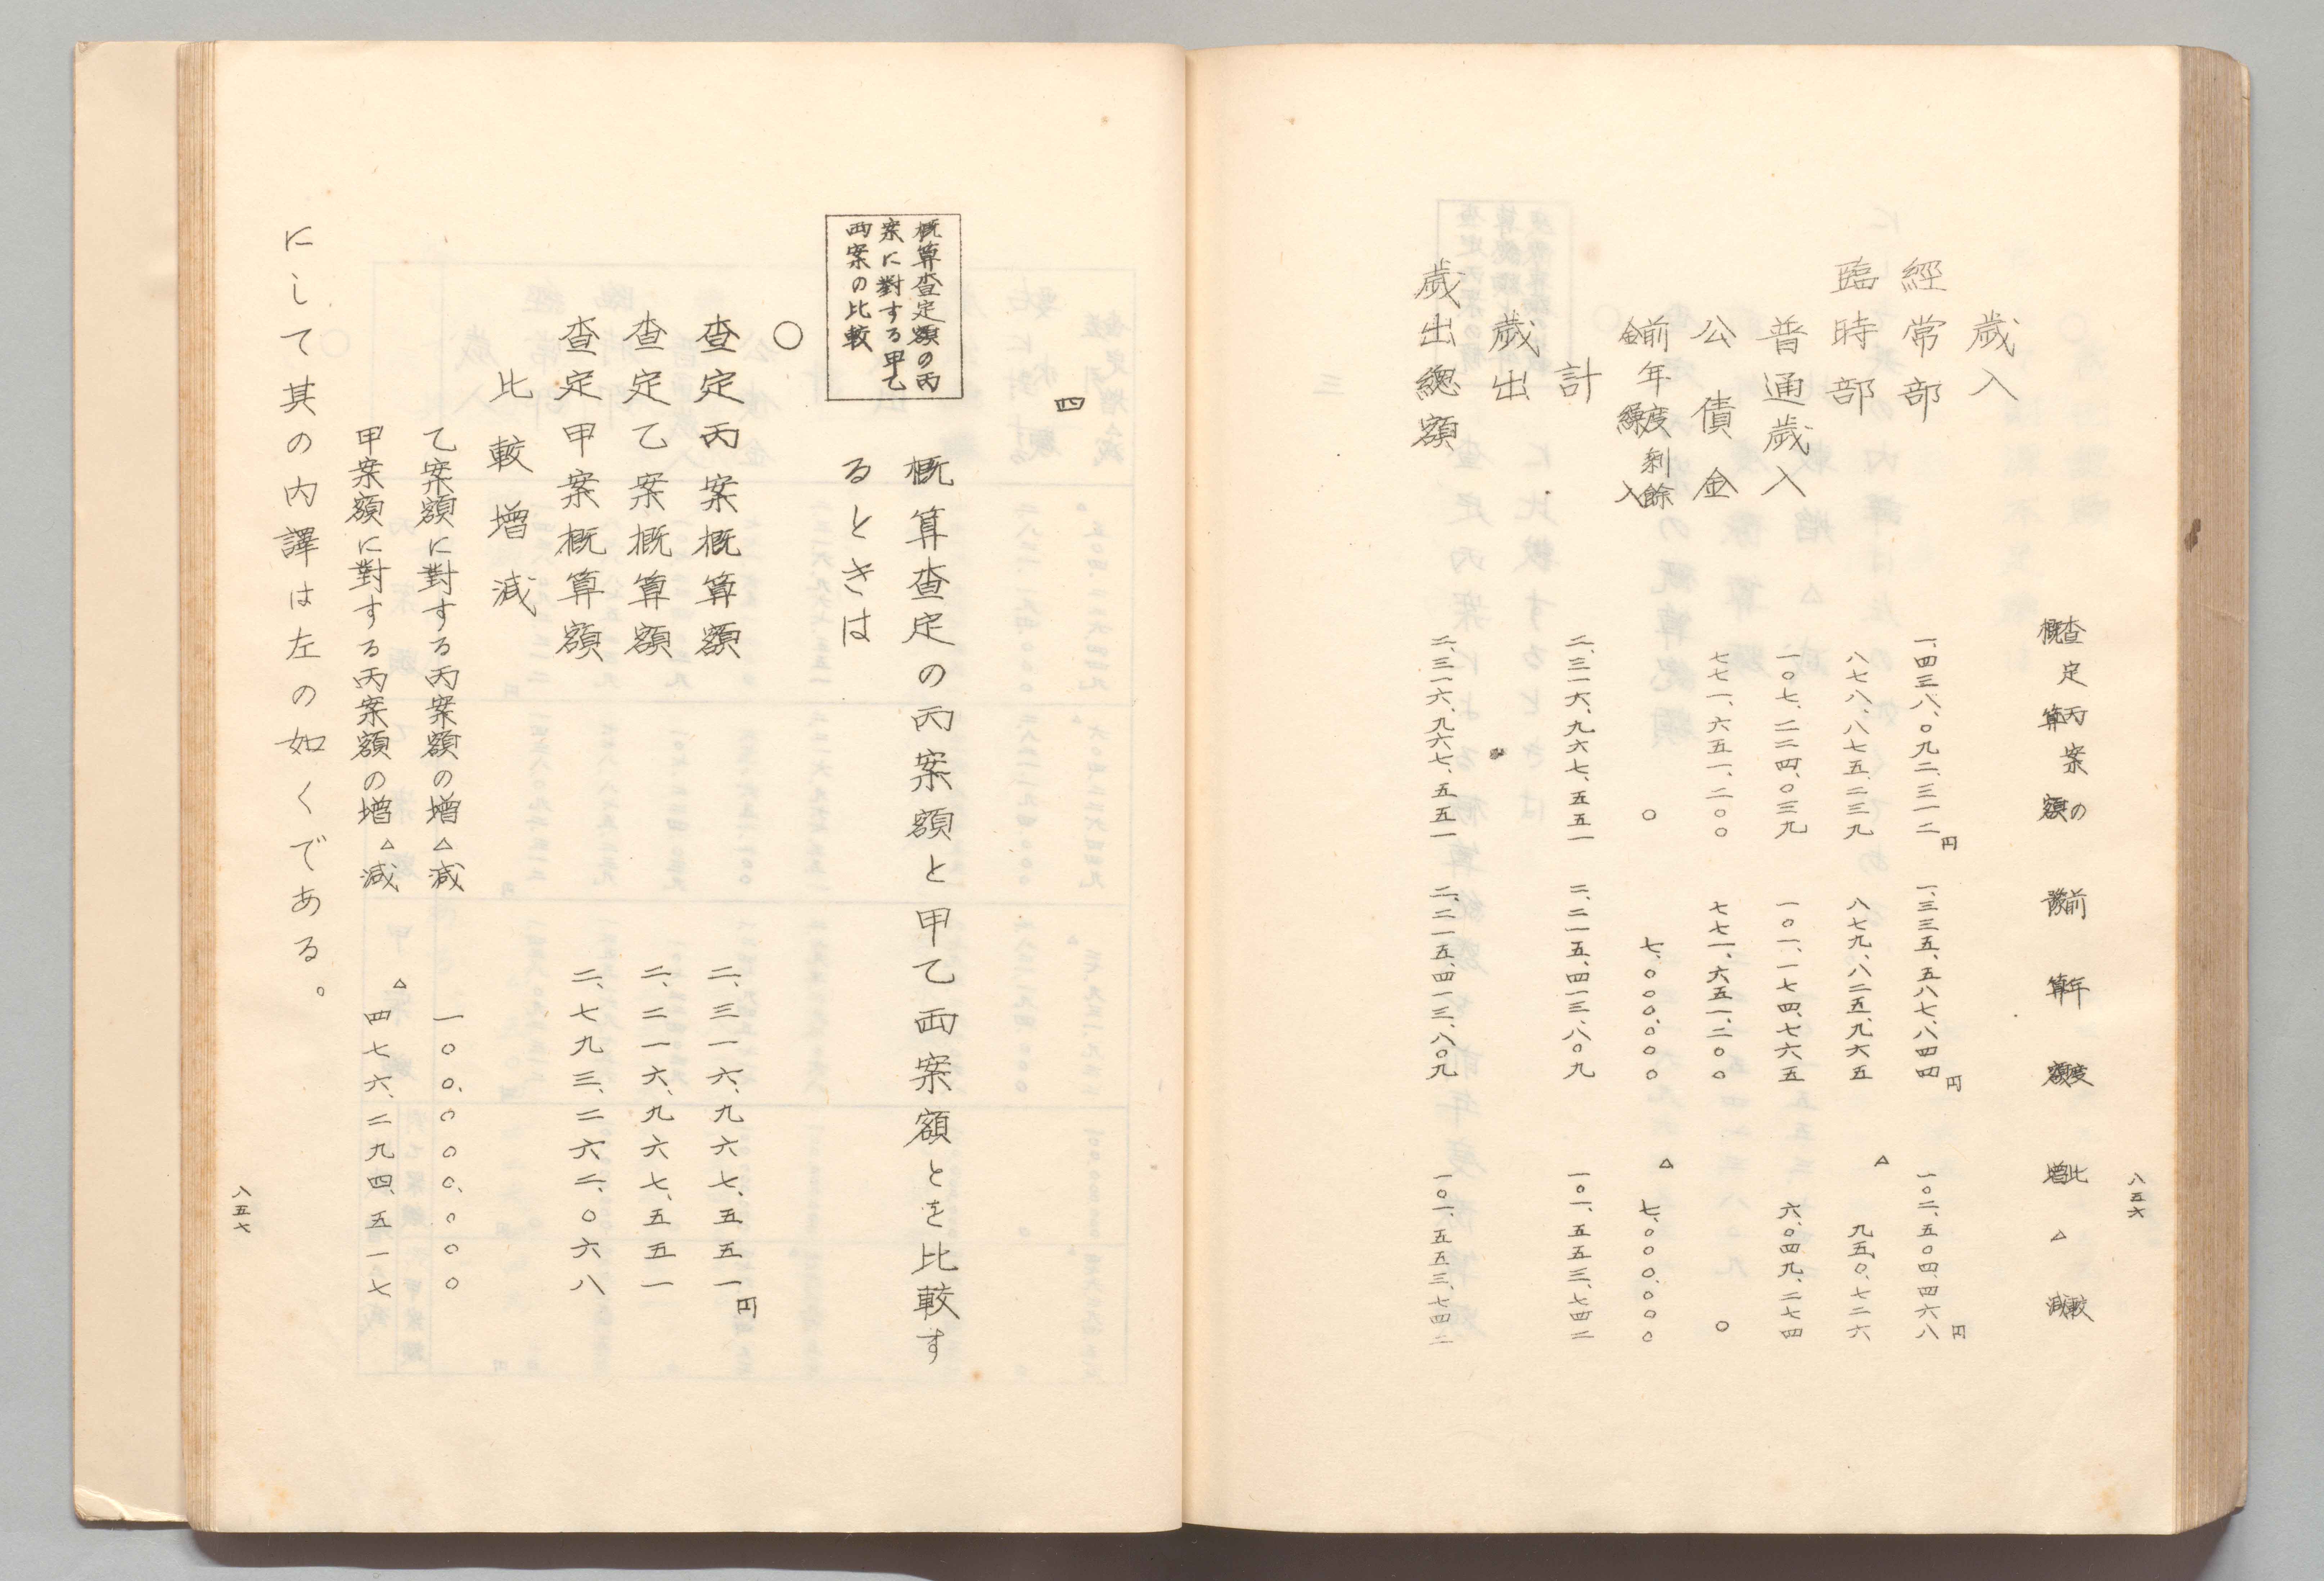 八五六
査定丙案の概算額 前年度豫算額 比較増△減
歳入
經常部 一、四三八、〇九二、三一二円 一、三三五、五八七、八四四円 一〇二、五〇四、四六八円
臨時部 八七八、八七五、二三九 八七九、八二五、九六五 △ 九五〇、七二六
普通歳入 一〇七、二二四、〇三九 一〇一、一七四、七六五 六、〇四九、二七四
公債金 七七一、六五一、二〇〇 七七一、六五一、二〇〇 〇
前年度剰餘金繰入 〇 七、〇〇〇、〇〇〇 △ 七、〇〇〇、〇〇〇
計 二、三一六、九六七、五五一 二、二一五、四一三、八〇九 一〇一、五五三、七四二
歳出
歳出總額 二、三一六、九六七、五五一 二、二一五、四一三、八〇九 一〇一、五五三、七四二
四
概算査定額の丙
案に對する甲乙
両案の比較
概算査定の丙案額と甲乙両案額とを比較す
るときは
〇
査定丙案概算額 二、三一六、九六七、五五一円
査定乙案概算額 二、二一六、九六七、五五一
査定甲案概算額 二、七九三、二六二、〇六八
比較増減
乙案額に對する丙案額の増△減 一〇〇、〇〇〇、〇〇〇
甲案額に對する丙案額の増△減 △ 四七六、二九四、五一七
にして其の内譯は左の如くである。
八五七